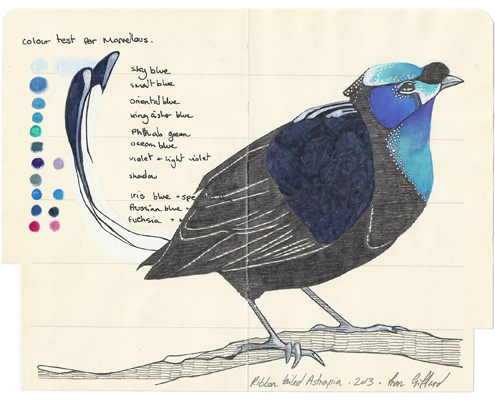 colour test for Marvellous.
sky blue
smalt blue
oriental blue
kingfisher blue
Phthalo green
ocean blue
violet + light violet
shadow
iris blue + spe
Prussian blue +
fuchsia +
Ribbon tailed Astrapia . 2013 .